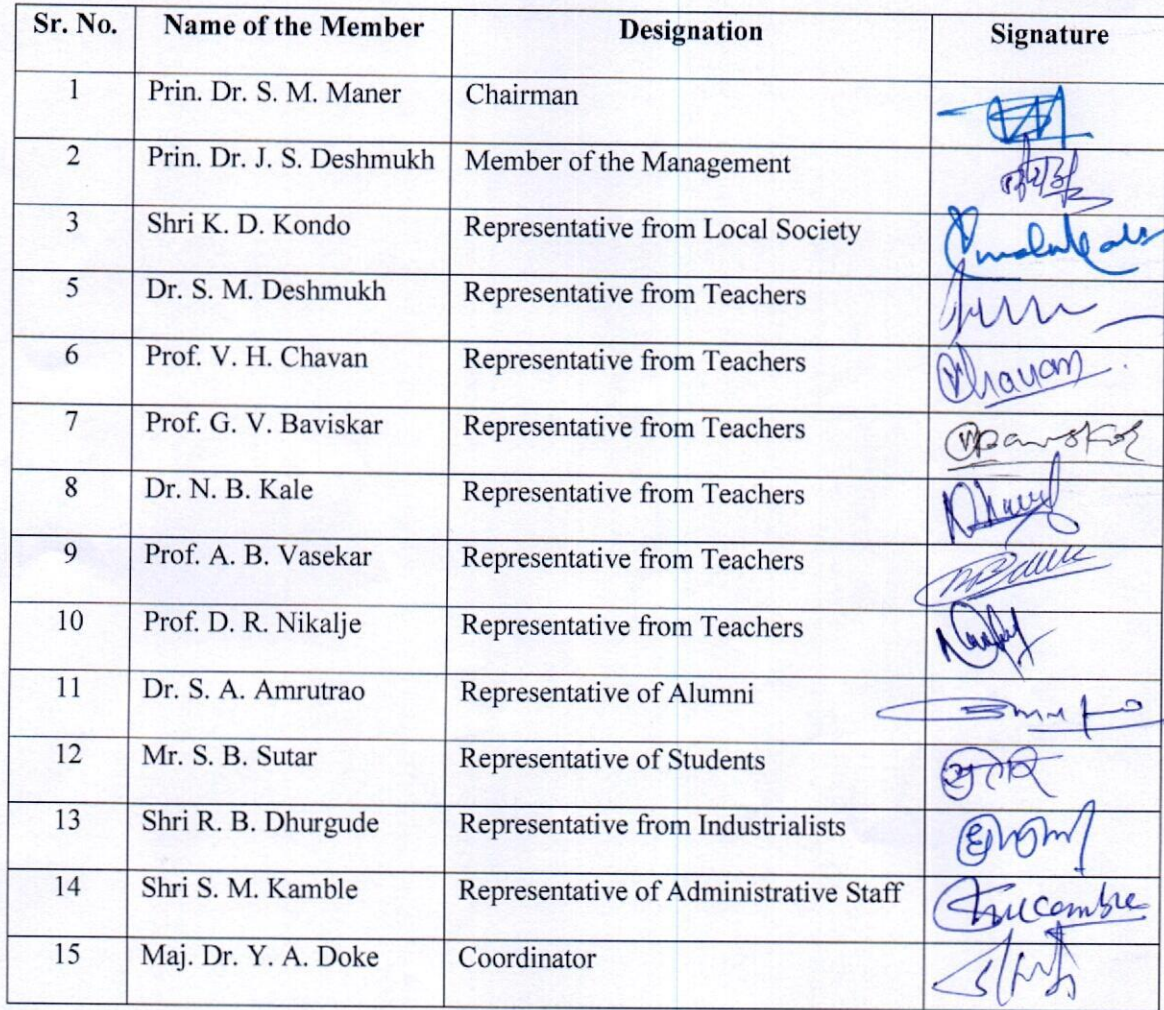 Sr. No. Name of the Member Designation Signature
1 Prin. Dr. S. M. Maner Chairman
2 Prin. Dr. J. S. Deshmukh Member of the Management
3 Shri K. D. Kondo Representative from Local Society
5 Dr. S. M. Deshmukh Representative from Teachers
6 Prof. V. H. Chavan Representative from Teachers
7 Prof. G. V. Baviskar Representative from Teachers
8 Dr. N. B. Kale Representative from Teachers
9 Prof. A. B. Vasekar Representative from Teachers
10 Prof. D. R. Nikalje Representative from Teachers
11 Dr. S. A. Amrutrao Representative of Alumni
12 Mr. S. B. Sutar Representative of Students
13 Shri R. B. Dhurgude Representative from Industrialists
14 Shri S. M. Kamble Representative of Administrative Staff
15 Maj. Dr. Y. A. Doke Coordinator